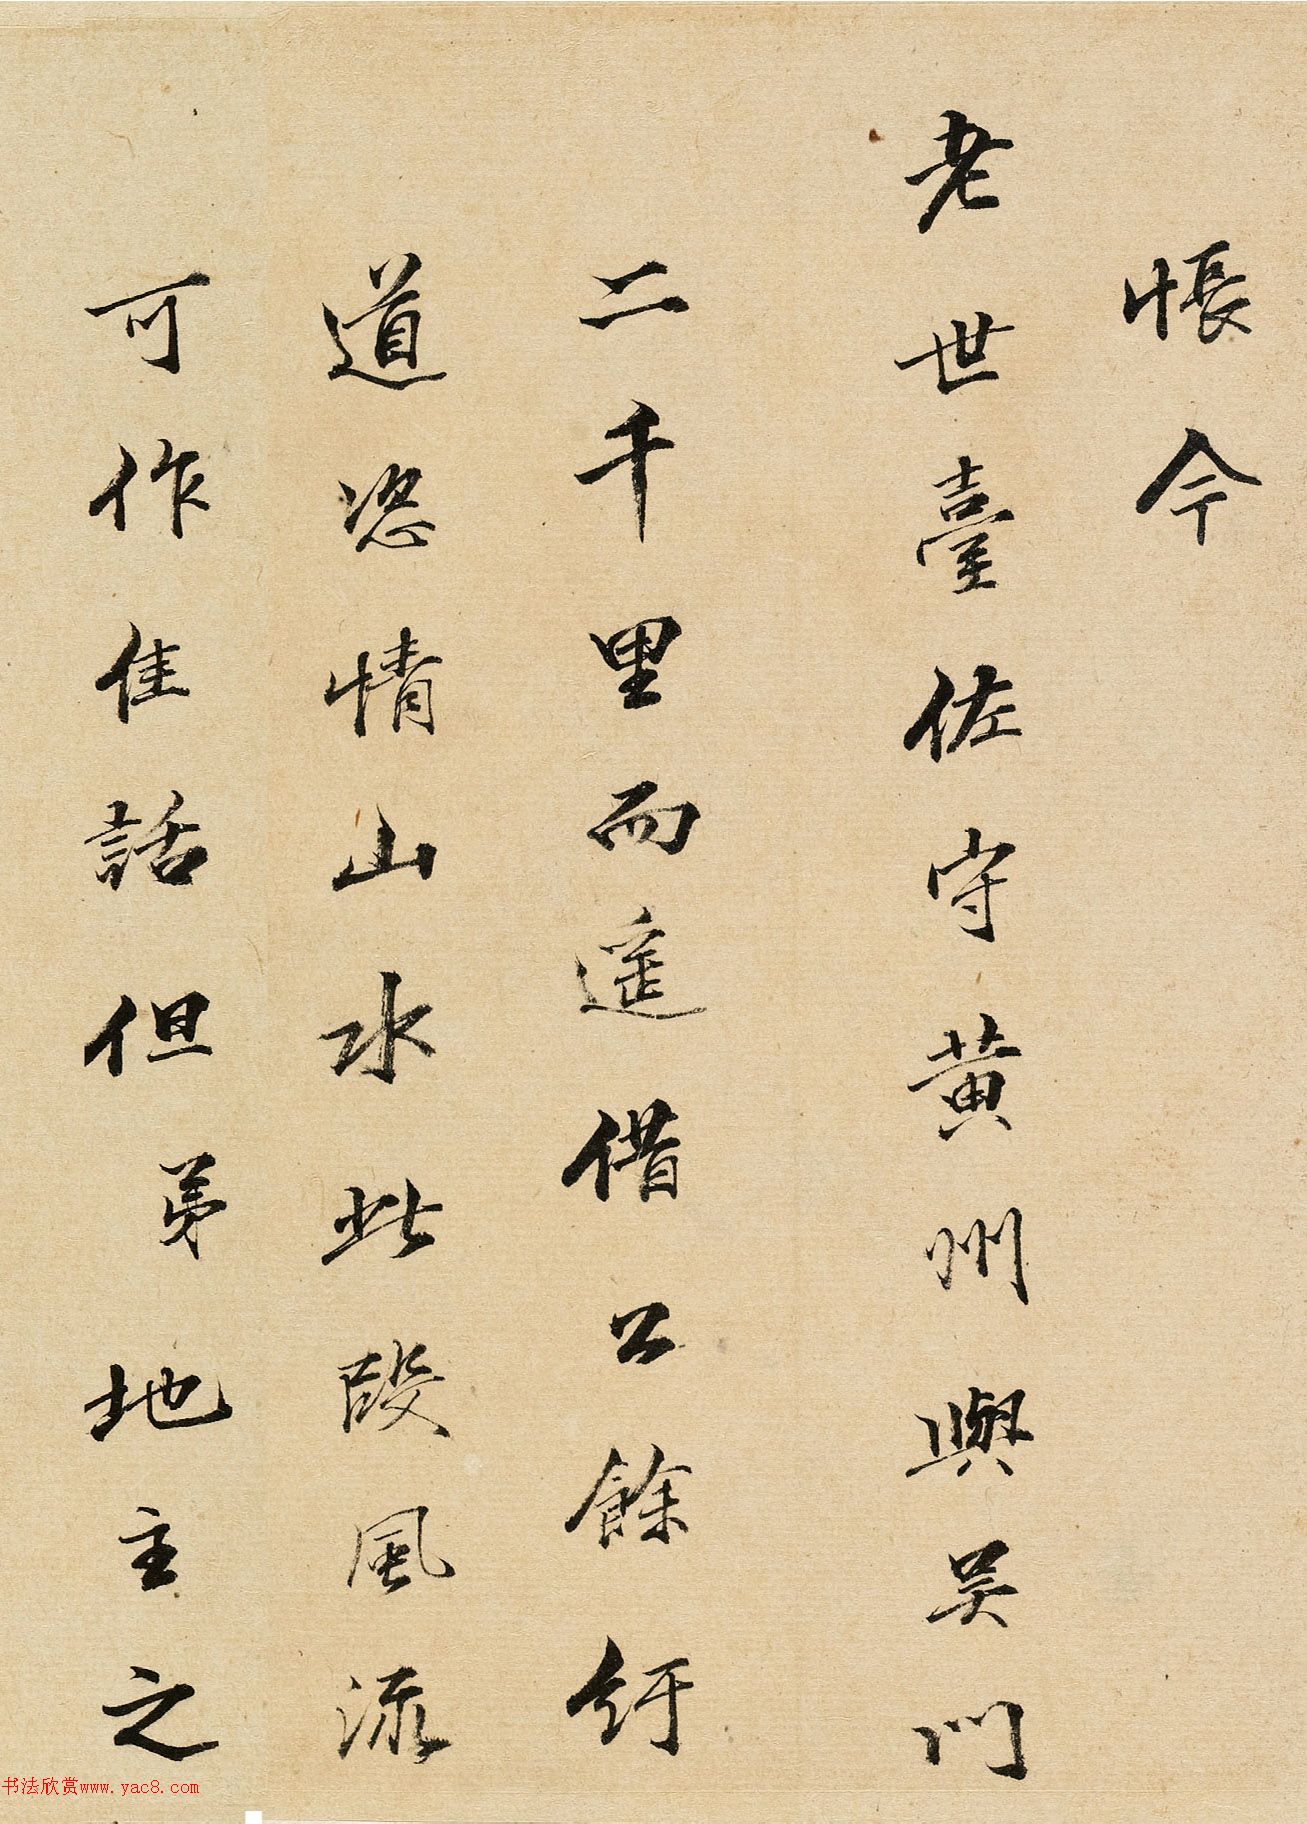 悵今
老世臺佐守黄州與吴門
二千里而遥借公餘紆
道恣情山水此段風流
可作佳話但弟地主之
书法欣赏www.yac8.com